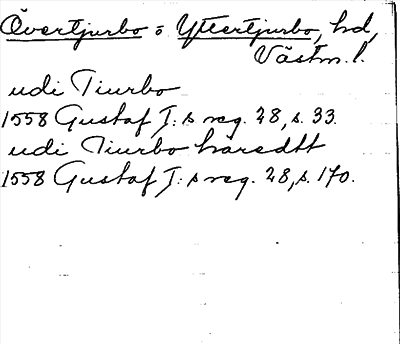 Övertjurbo o Yttertjurbo, hd,
Västm. l.
udi Tiurbo
1558 Gustaf I: s reg. 28, s. 33.
udi Tiurbo häredtt
1558 Gustaf I: s reg. 28, s. 170.